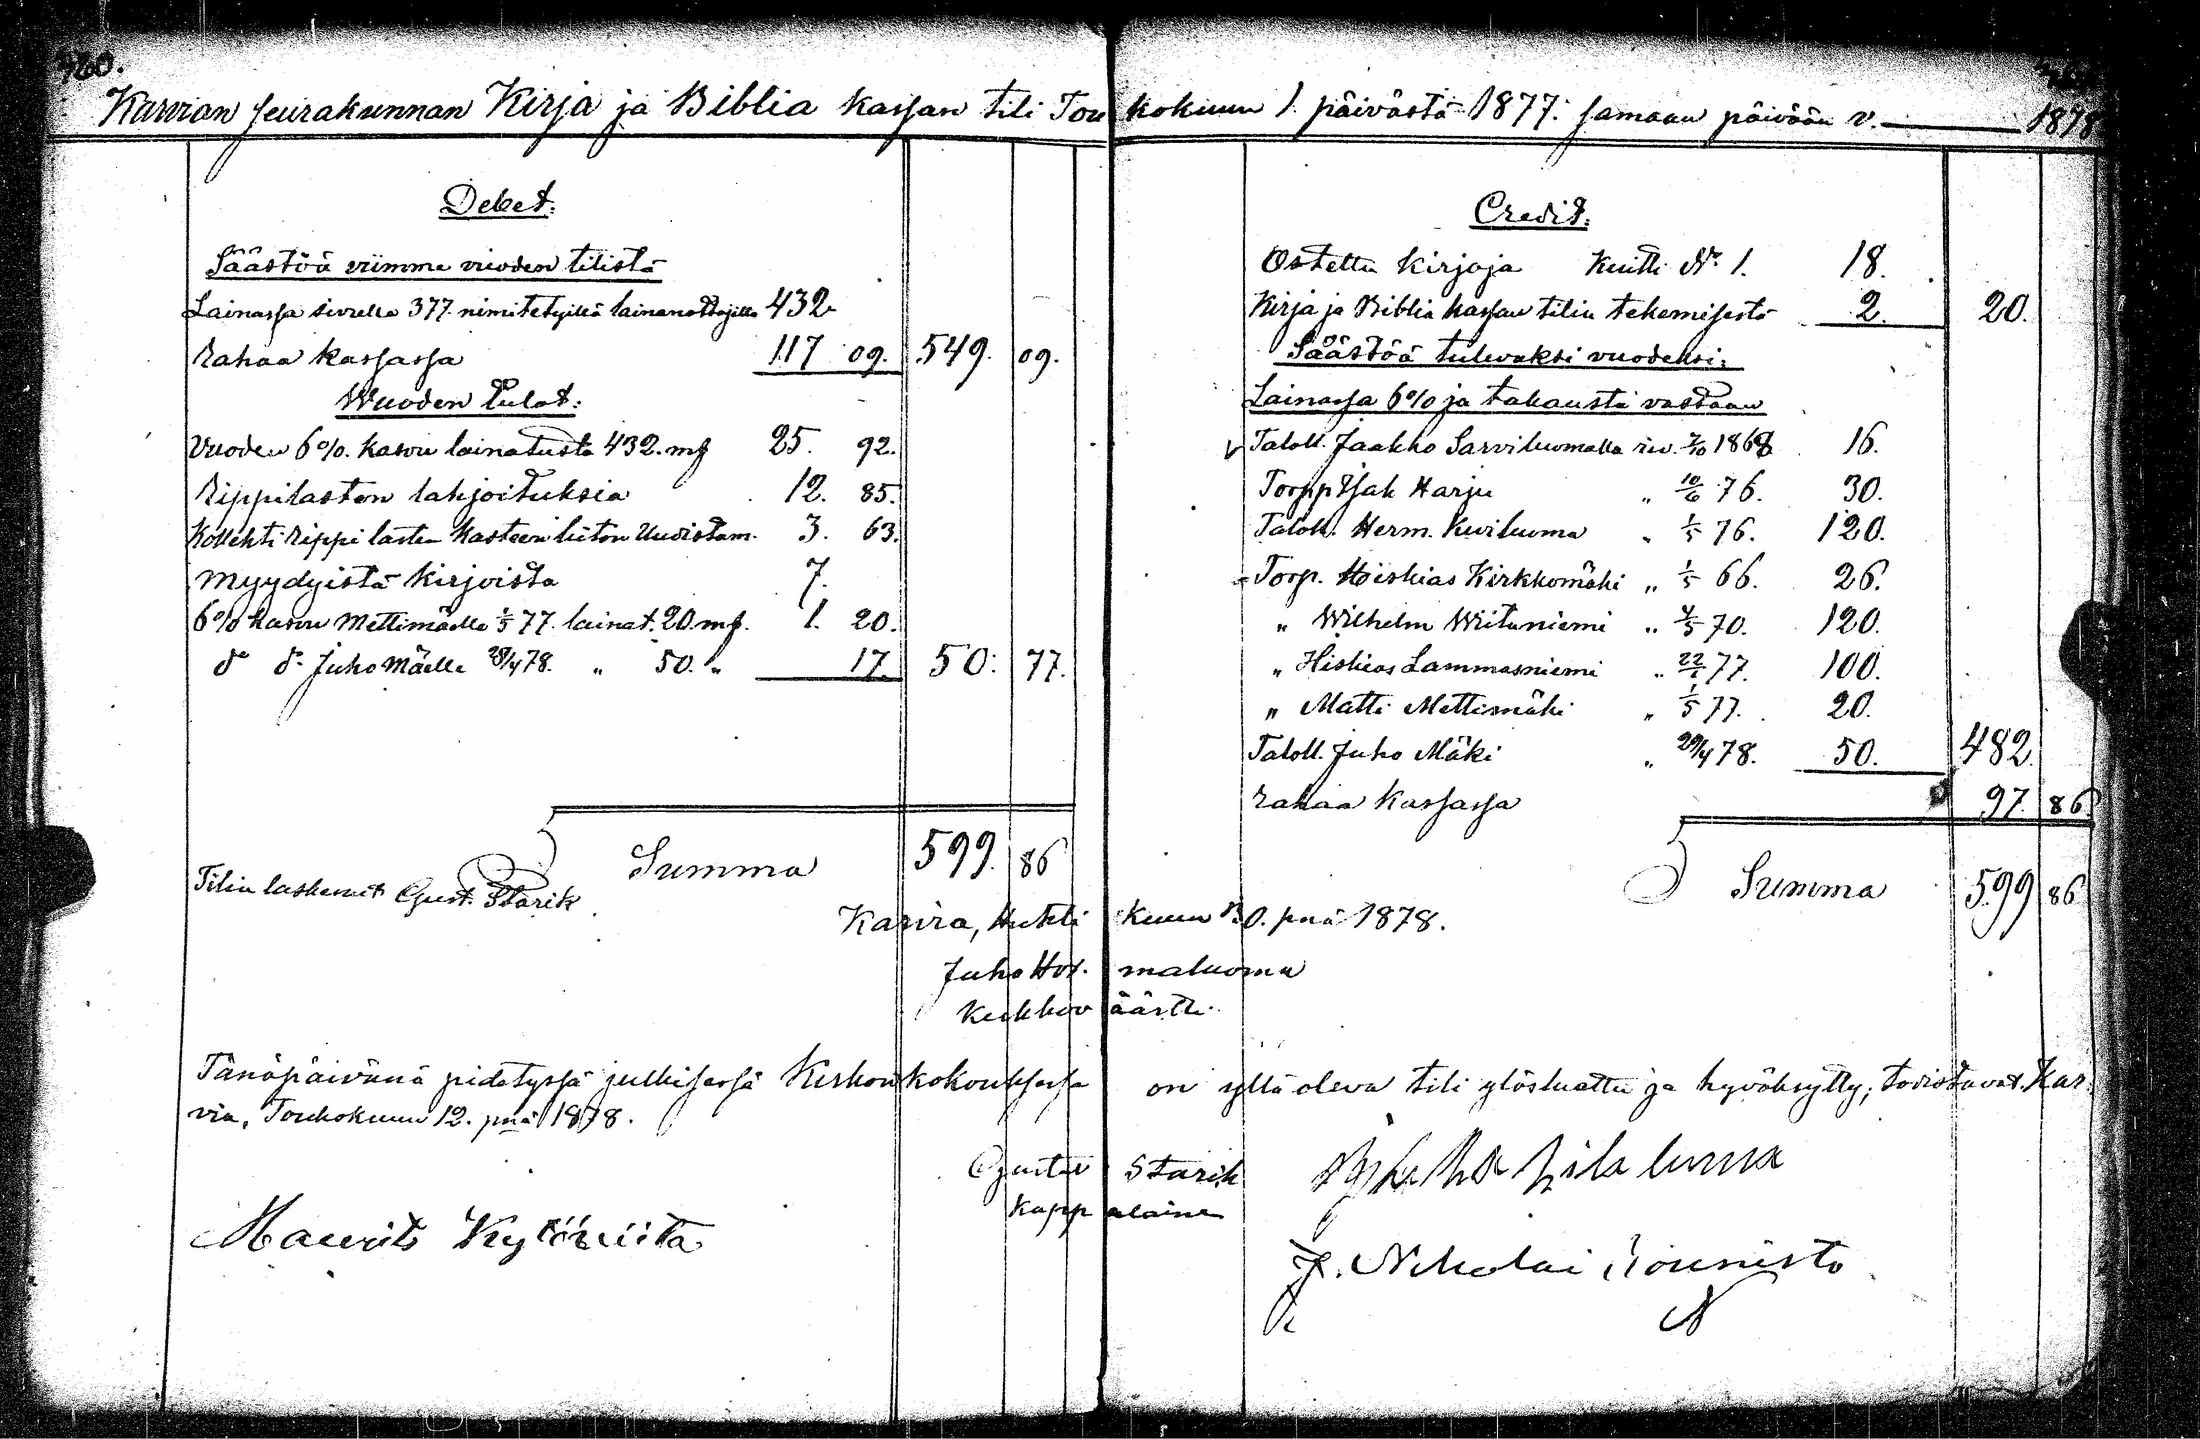 Karvian seurakunnan Kirja ja Biblia kassan tili Toukokuun 1. päivästä 1877. samaan päivään v. 1878
Debet.
Säästöä viimme vuoden tilistä
Lainassa sivulla 377. nimitetyillä lainanottajilla 432.
Rahaa kassassa 117 09. 549. 09.
Wuoden Tulot:
Vuoden 6%. kasvu lainatusta 432. mf 25. 92.
Rippilasten lahjoituksia 12. 85.
Kollehti Rippi lasten Kasteen liiton Uudistam. 3. 63.
Myydyistä Kirjoista 7.
6% kasvu Mettimäelle 1/5 77. lainat. 20 mf. 1. 20.
do do Juho Mäelle 28/4 78. „ 50. „ 17. 50. 77.
Summa 599. 86
Tilin laskenut Gust. Starik
Credit.
Ostettu Kirjoja Kuitti No 1. 18.
Kirja ja Biblia kassan tilin tekemisestä 2. 20.
Säästöä tulevaksi vuodeksi:
Lainassa 6% ja takausta vastaan
Taloll. Jaakko Sarviluomalla 1868 16.
Torpp Isak Harju „ 10/6 76. 30.
Taloll. Herm. Kuiluoma „ 1/5 76. 120.
Torp. Hiskias Kirkkomäki „ 1/5 66. 26.
„ Wilhelm Wiitaniemi „ 1/5 70. 120.
„ Hiskias Lammasniemi „ 77. 100.
„ Matti Mettimäki „ 1/5 77. 20.
Taloll. Juho Mäki „ 29/4 78. 50. 482.
Rahaa Kassassa 97. 86
Summa 599 86
Karvia, Huhtikuun 30. pnä 1878.
Juho Hormaluoma
Kirkkoväärti.
Tänäpäivänä pidetyssä julkisessa Kirkonkokouksessa on yllä oleva tili ylösluettu ja hyväksytty; todistavat. Kar-
via, Toukokuun 12. pnä 1878.
Gustav Starik
Kappalainen
Maurits Kytöviita
luoma
J. Nikolai